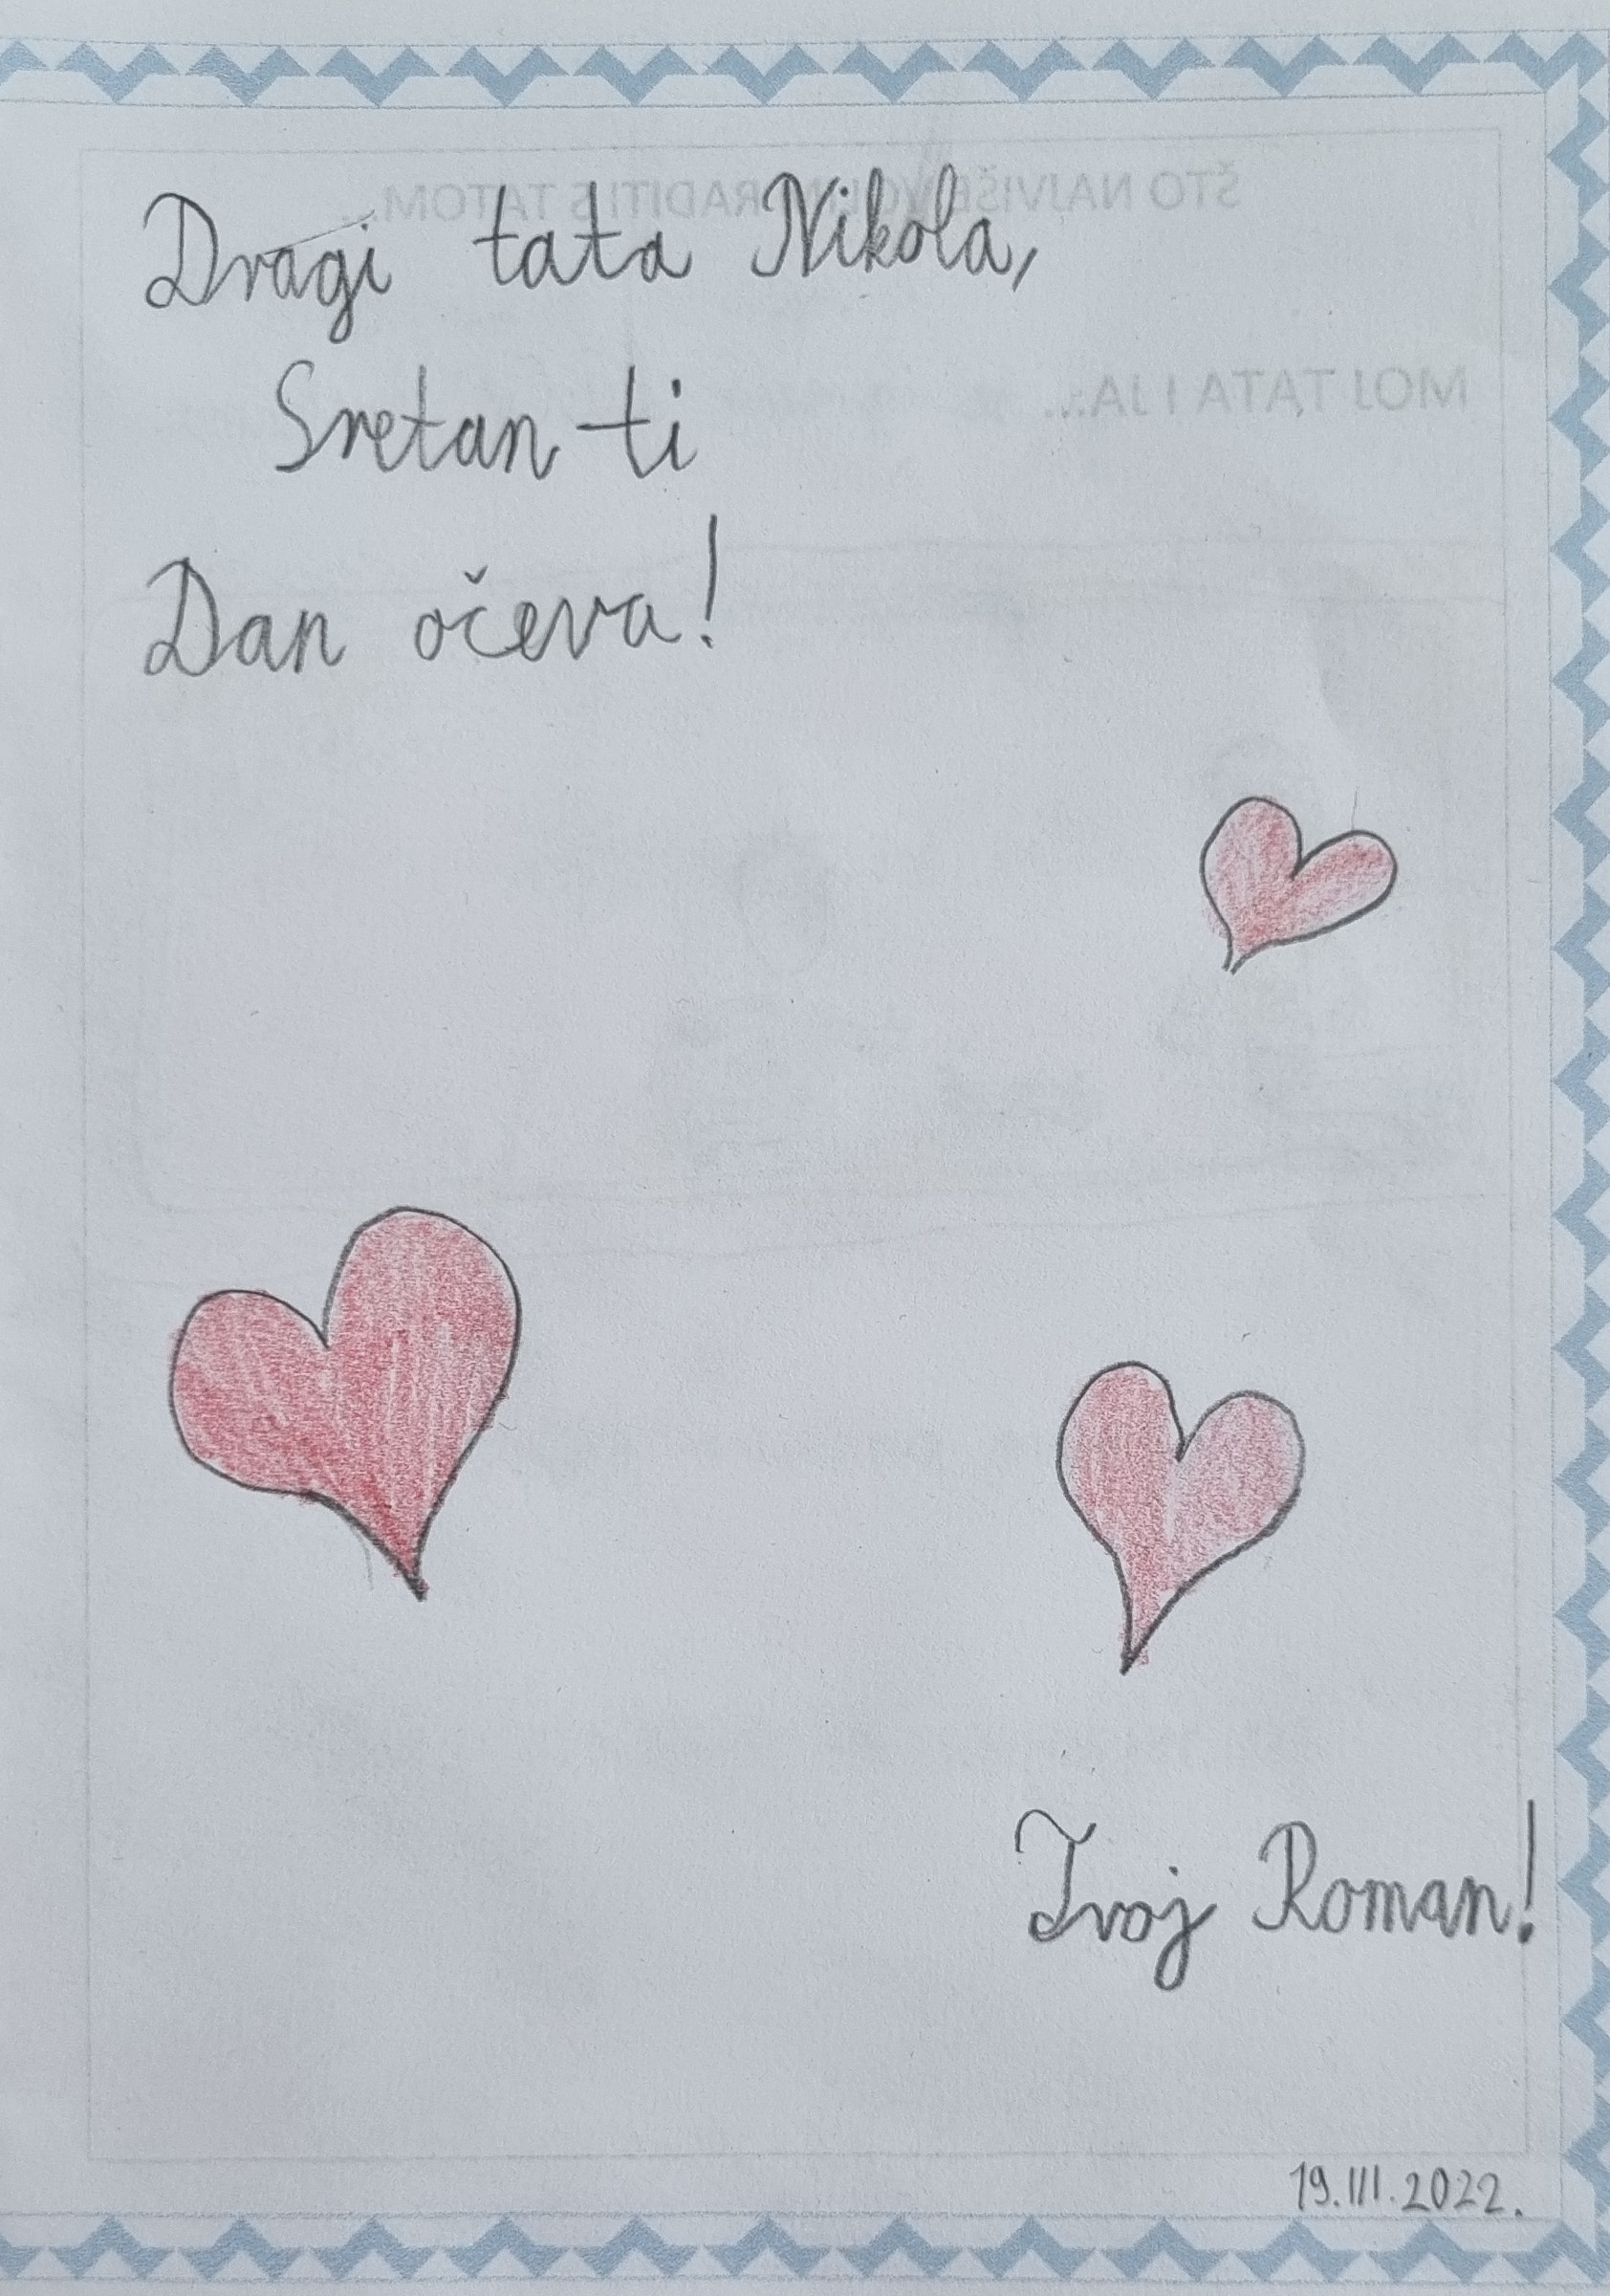 Dragi tata Nikola,
Sretan ti
Dan očeva!
Tvoj Roman!
19.III.2022.